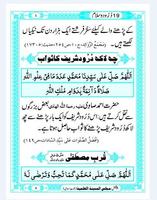 19 دُرُود و سلام
کے پڑھنے والے کیلئے ستر فرشتے ایک ہزار دن تک نیکیاں
لکھتے ہیں۔
چھ لاکھ دُرُود شریف کا ثواب
اَللّٰهُمَّ صَلِّ عَلٰی سَیِّدِنَا مُحَمَّدٍ عَدَدَ مَا فِیْ عِلْمِ اللّٰهِ
صَلَاةً دَآئِمَةً ۢ بِدَوَامِ مُلْكِ اللّٰهِ
حضرت احمد صاوی بعض بزرگوں سے
اس دُرُود شریف کو ایک بار پڑھنے سے چھ لاکھ
دُرُود شریف پڑھنے کا ثواب حاصل ہوتا ہے۔
قُربِ مصطَفٰے
اَللّٰهُمَّ صَلِّ عَلٰی مُحَمَّدٍ كَمَا تُحِبُّ وَتَرْضٰی لَهٗ